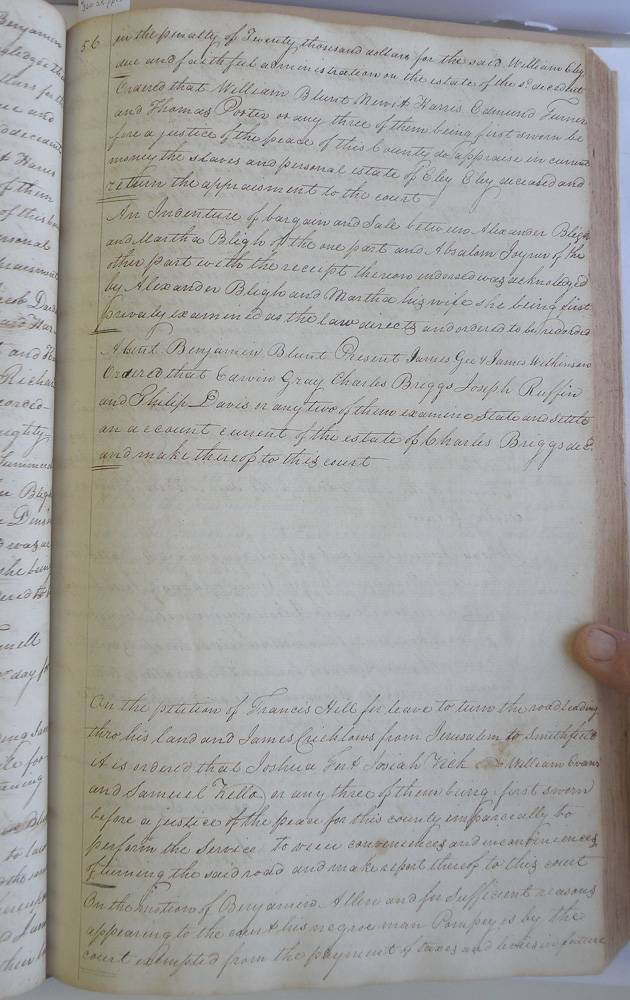 56
in the penalty of Twenty thousand dollars for the said William Eley
due and faithful administration on the estate of the sd. decedent
Ordered that William Blunt Newit Harris Edmund Turner
and Thomas Porter or any three of them being first sworn be
fore a justice of the peace of this County do appraise in current
money the slaves and personal estate of Eley Eley deceased and
return the appraisment to the court
An Indenture of bargain and Sale between Alexander Bligh
and Martha Bligh of the one part and Absalom Joyner of the
other part with the receipt thereon indorsed was acknoleged
by Alexander Bligh and Martha his wife she being first
privaly examined as the law directs and ordered to be recorded
Absent Benjamin Blunt Present James Gee & James Wilkinson
Ordered that Edwin Gray Charles Briggs Joseph Ruffin
and Philip Davis or any two of them examine State and settle
an account current of the estate of Charles Briggs decd.
and make thereof to this court
On the petition of Francis Hill for leave to turn the road leading
thro his land and James Crichlows from Jerusalem to Smithfield
it is ordered that Joshua Fort Josiah Vick William Evans
and Samuel Kello or any three of them being first sworn
before a justice of the peace for this county imparcially to
perform the service to view conveniences and inconveniences
of turning the said road and make report thereof to this court
On the motion of Benjamin Allen and for sufficient reasons
appearing to the court his negroe man Pompey is by the
court exempted from the payment of taxes and levies in future